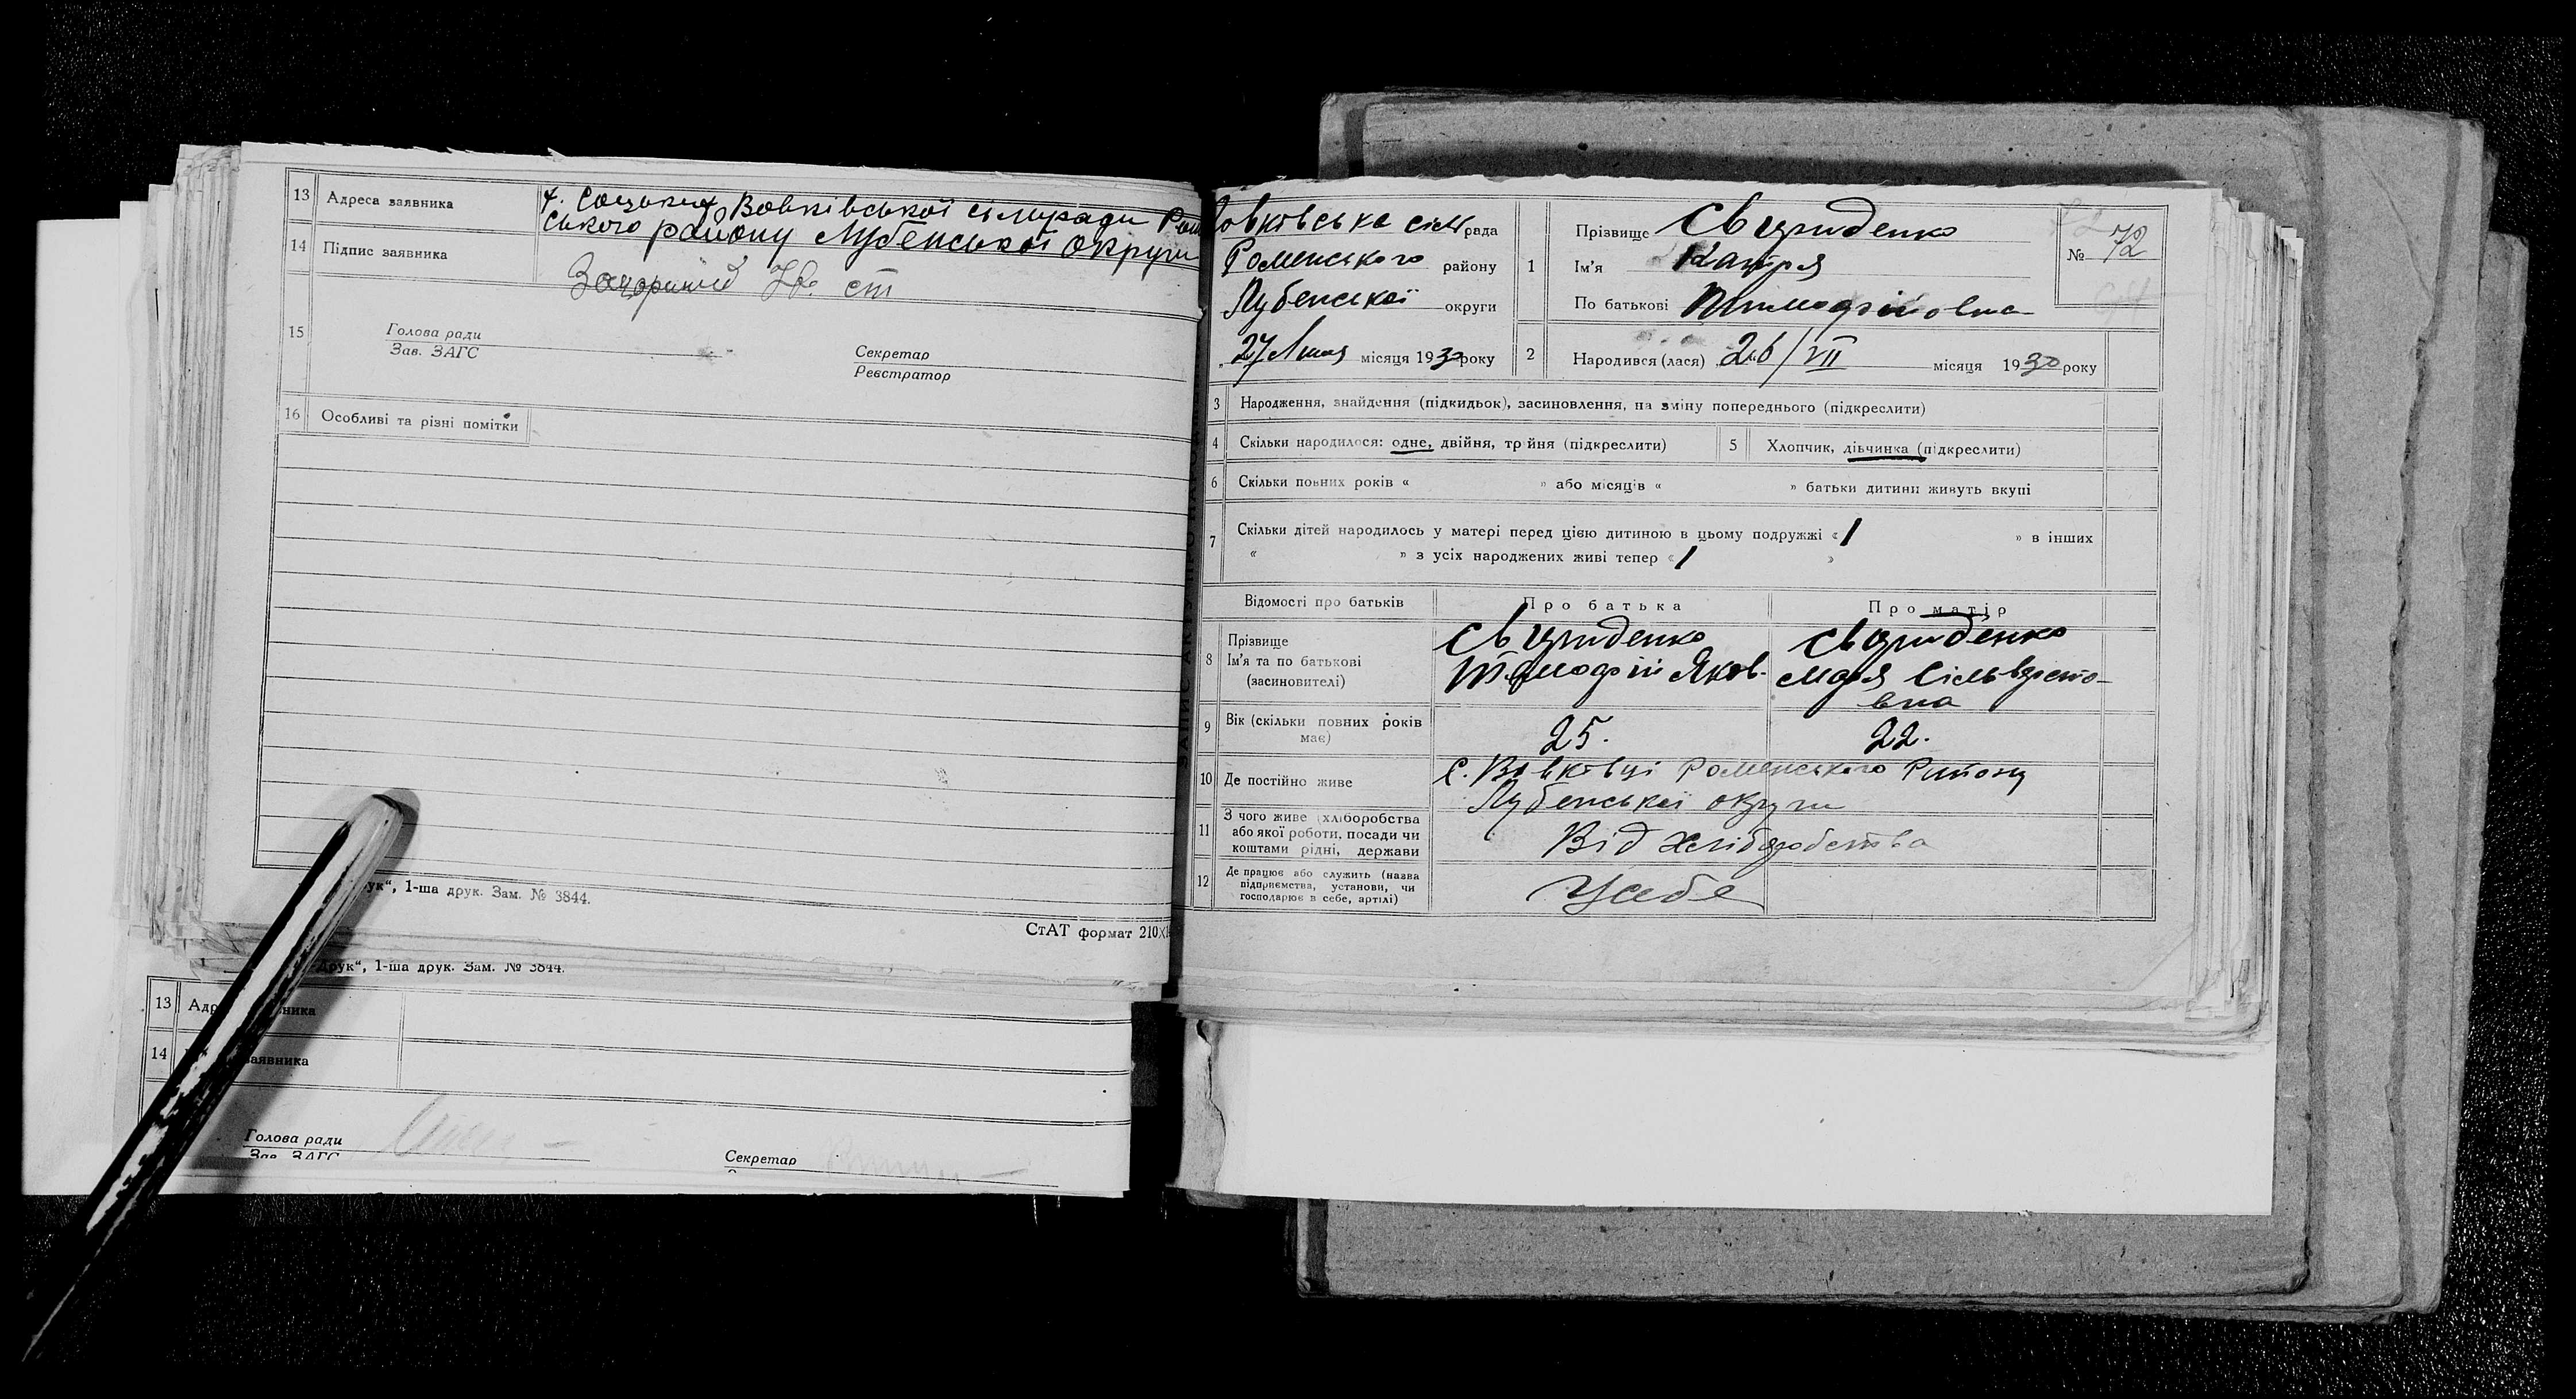 13 Адреса заявника х. Соцьких, Вовківської сільради Ром
ського району Лубенської округи
14 Підпис заявника
15 Голова ради
Зав. ЗАГС
Секретар
Реєстратор
16 Особливі та різні помітки
ук“, 1-ша друк. Зам. № 3844.
СтАТ формат 210×1
-Друк“, 1-ша друк. Зам. № 3844.
13
14
заявника
Голова ради
Зав. ЗАГС
Секретар
овківська сільрада
Роменського району
Лубенської округи
„27 липня місяця 1930 року
1 Прізвище Свириденко
Ім'я Катря
По батькові Тимофіївна
№ 72
2 Народився (лася) 26/VII місяця 1930 року
3 Народження, знайдення (підкидьок), засиновлення, на зміну попереднього (підкреслити)
4 Скільки народилося: одне, двійня, трійня (підкреслити)
5 Хлопчик, дівчинка (підкреслити)
6 Скільки повних років « » або місяців « » батьки дитини живуть вкупі
7 Скільки дітей народилось у матері перед цією дитиною в цьому подружжі « 1 » в інших
« » з усіх народжених живі тепер « 1 »
Відомості про батьків Про батька Про матір
8 Прізвище Свириденко Свириденко
Ім'я та по батькові Тимофій Яков. Марія Сільвесто-
(засиновителі) вна
9 Вік (скільки повних років має) 25. 22.
10 Де постійно живе С. Вовківці Роменського Району
Лубенської округи
11 З чого живе (хліборобства
або якої роботи, посади чи
коштами рідні, держави
Від хліборобства
12 Де працює або служить (назва
підприємства, установи, чи
господарює в себе, артілі)
У себе